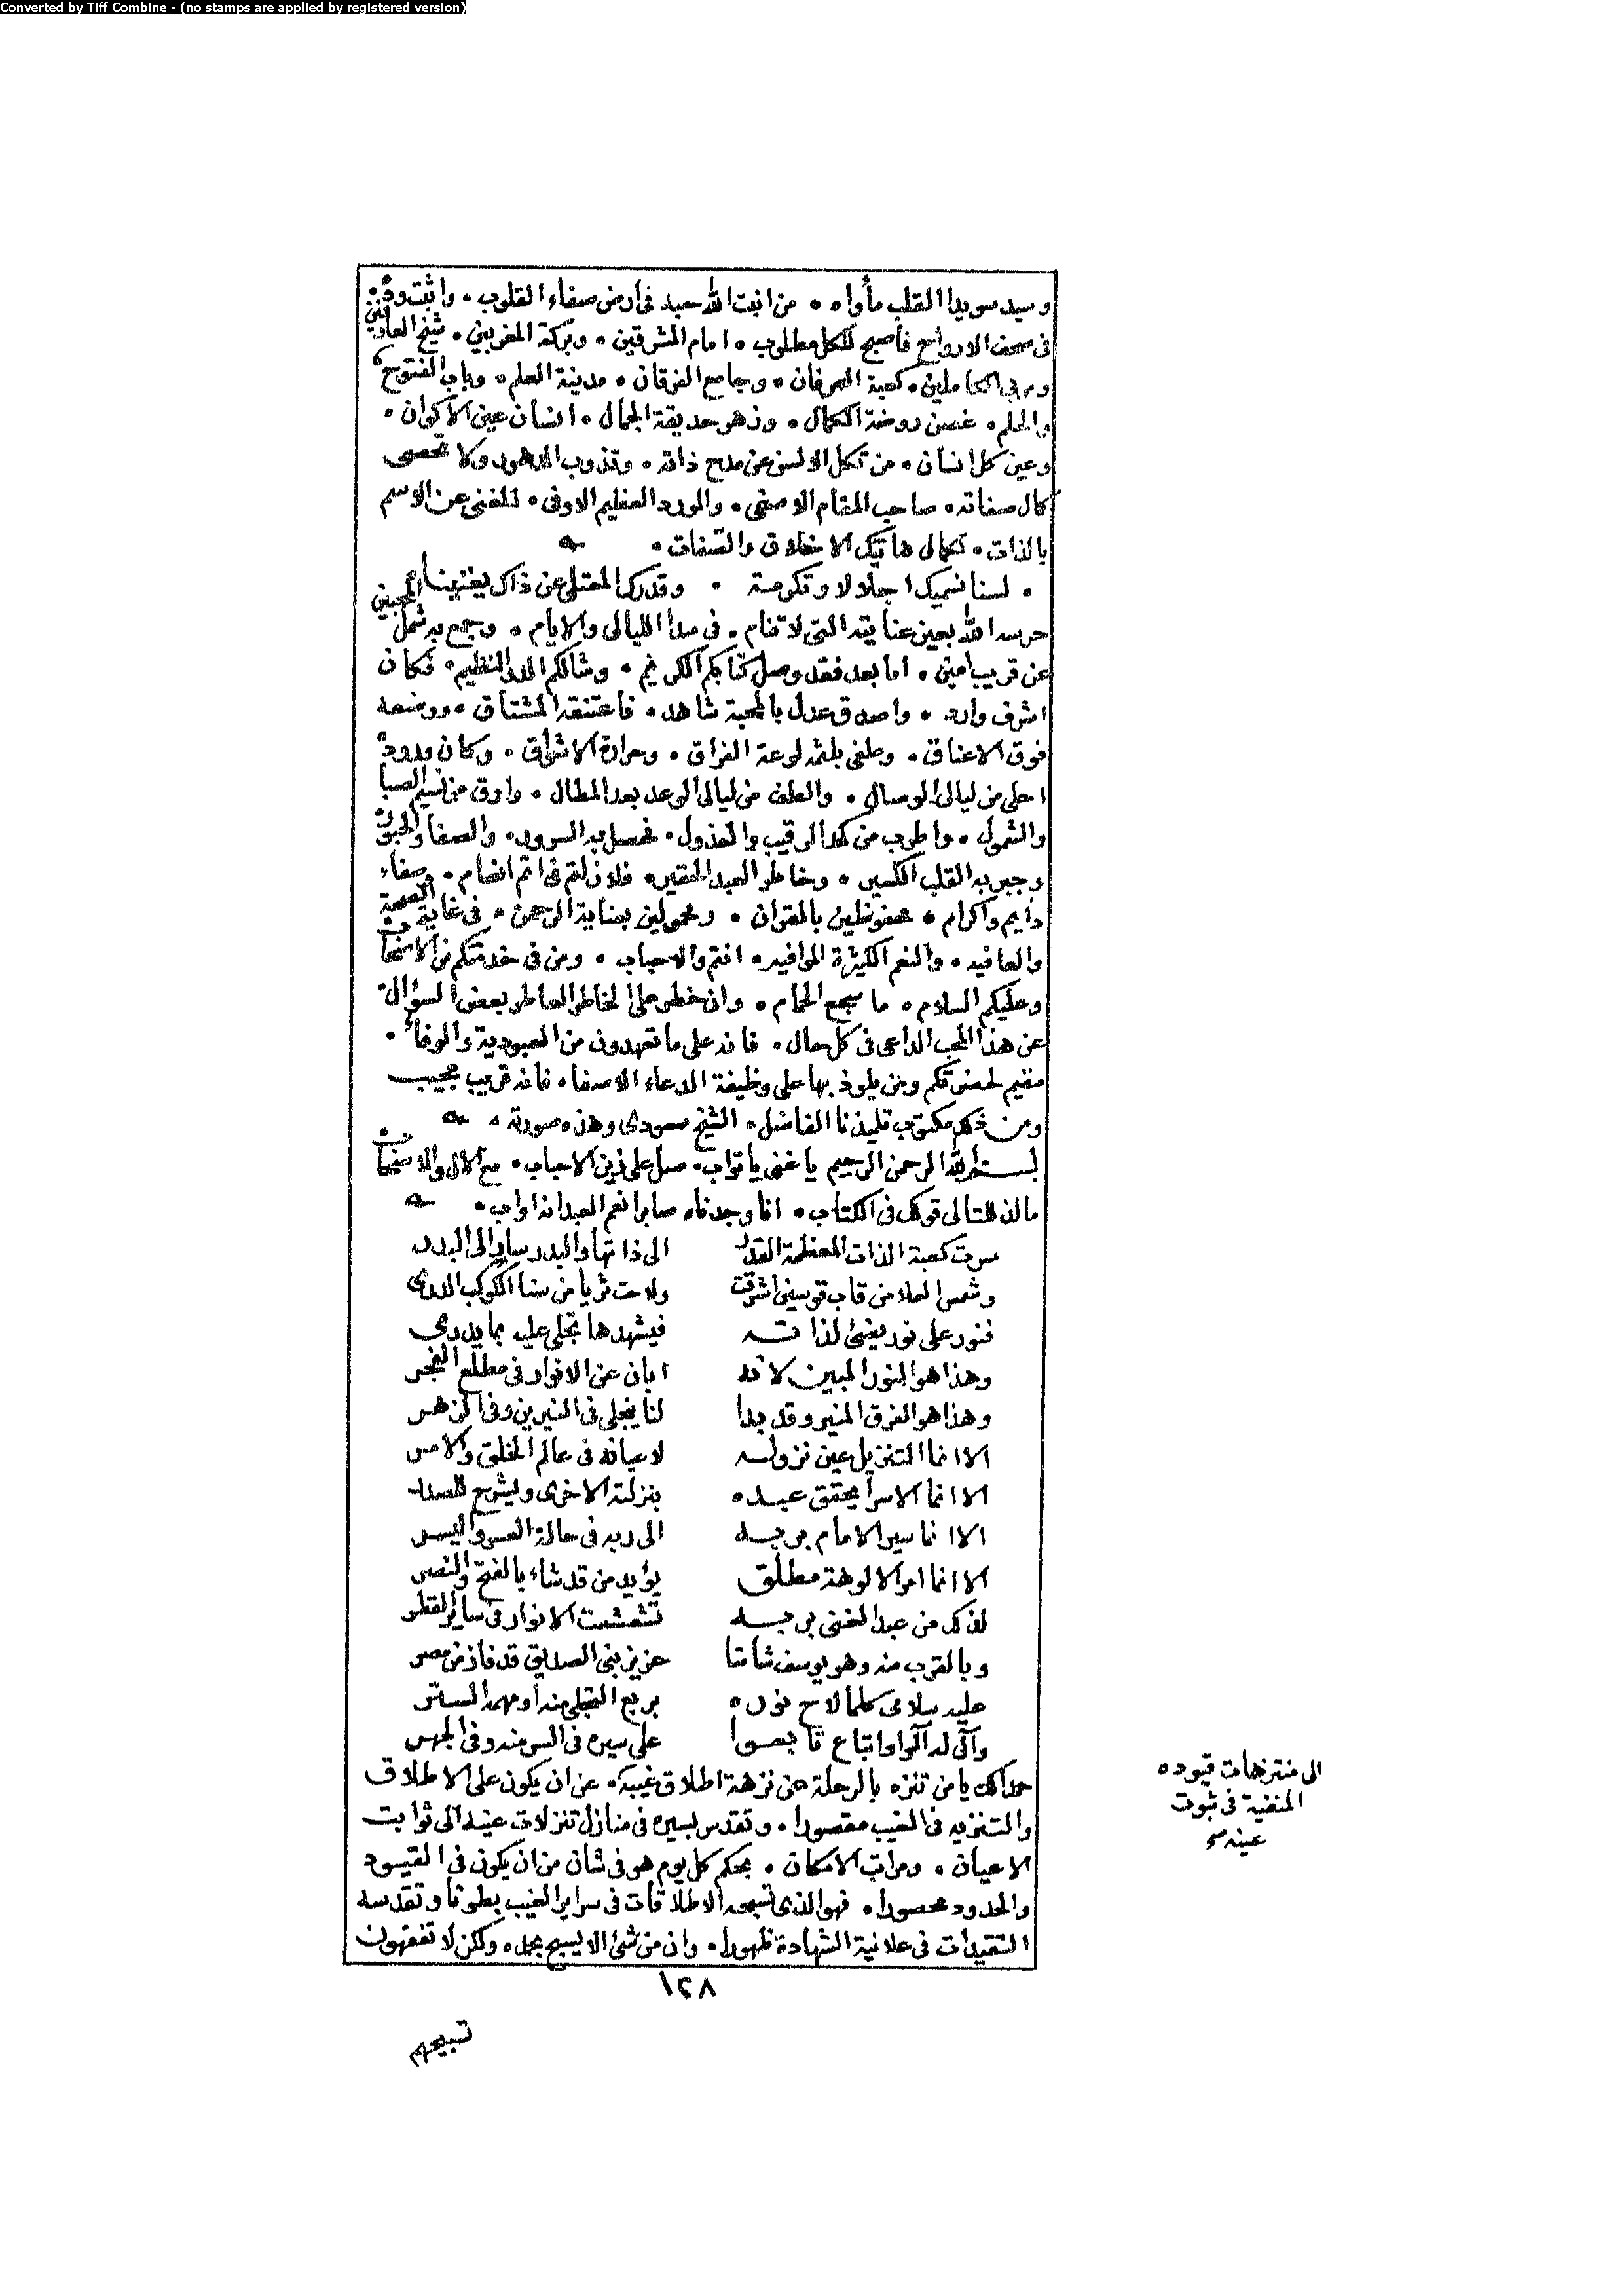 Converted by Tiff Combine - (no stamps are applied by registered version)
وسيد سويدا القلب مأواه ۰ من انبت الله حبه فى ارض صفاء القلوب ۰ واثبت وده
فى صحف الارواح فاصبح للكل مطلوب ۰ امام المشرقين ۰ وبركة المغربين ۰ شيخ العارفين
ومربى الكاملين ۰ كعبة العرفان ۰ وجامع الفرقان ۰ مدينة العلم ۰ وباب الفتوح
والحلم ۰ غصن روضة الكمال ۰ وزهر حديقة الجمال ۰ انسان عين الاكوان ۰
وعين كل انسان ۰ من تكل الالسن عن مدح ذاته ۰ وتذوب الدهور ولا تحصى
كمال صفاته ۰ صاحب المقام الاصفى ۰ والورد العظيم الاوفى ۰ المغنى عن الاسم
بالذات ۰ لكمال هاتيك الاخلاق والصفات ۰
۰ لسنا نسميك اجلالا وتكرمة ۰ وقدرك المعتلى عن ذاك يغنينا
حرسه الله بعين عنايته التى لا تنام ۰ فى مدا الليالى والايام ۰ وجمع به شمل المحبين
عن قريب امين ۰ اما بعد فقد وصل كتابكم الكريم ۰ ومثالكم الدر النظيم ۰ فكان
اشرف وارد ۰ واصدق عدل بالمحبة شاهد ۰ فاعتنقه المشتاق ۰ ووضعه
فوق الاعناق ۰ وطفى بلثمه لوعة الفراق ۰ وحرارة الاشواق ۰ وكان وروده
احلى من ليالى الوصال ۰ والطف من ليالى الوعد بعد المطال ۰ وارق من نسيم الصبا
والشمول ۰ واطرب من كمد الرقيب والعذول ۰ فحصل به السرور ۰ والصفا والحبور
وجبر به القلب الكسير ۰ وخاطر العبد الحقير ۰ فلا زلتم فى اتم انعام ۰ وصفاء
دايم واكرام ۰ محفوظين بالقران ۰ ومحمولين بعناية الرحمن ۰ فى غاية الصحة
والعافيه ۰ والنعم الكثيرة الموافيه ۰ انتم والاحباب ۰ ومن فى خدمتكم من الاصحاب
وعليكم السلام ۰ ما سجع الحمام ۰ وان خطر على الخاطر العاطر بعض السؤال ۰
عن هذا المحب الداعى فى كل حال ۰ فانه على ما تعهدون من العبودية والوفاء ۰
مقيم لحضرتكم ومن يلوذ بها على وظيفة الدعاء الاصفا ۰ فانه قريب مجيب
ومن ذلك مكتوب تلميذنا الفاضل ۰ الشيخ سعودى وهذه صورته ۰
بسم الله الرحمن الرحيم يا غنى يا تواب ۰ صل على زين الاحباب ۰ مع الال والاصحاب
ما لذ للتالى قولك فى الكتاب ۰ انا وجدناه صابرا نعم العبد انه اواب ۰
سرت كعبة الذات المعظمة القدر الى ذاتها والبدر سار الى البدر
وشمس العلا من قاب قوسين اشرقت ولاحت ثريا من سنا الكوكب الدرى
فنور على نور يضئ لذاته فيشهدها تجلى عليه بما يدرى
وهذا هو النور المبين لانه ابان عن الانوار فى مطلع الفجر
وهذا هو الفرق المنير وقد بدا لنا ينجلى فى النيرين وفى الزهر
الا انما التنزيل عين نزوله لاعيانه فى عالم الخلق والامر
الا انما الاسرا يحقق عبده بنزلته الاخرى ويشرح للصدر
الا انما سير الامام بربه الى ربه فى حالة العسر واليسر
الا انما امر الالوهة مطلق يؤيد من قد شاء بالفتح والنصر
لذلك من عبد الغنى بربه تشعشعت الانوار فى ساير القطر
وبالقرب منه وهو يوسف شامنا عزيز بنى الصديق قد فاز من مصر
عليه سلامى كلما لاح نوره بربع التجلى منه او مهمه الستر
وآل له آلوا واتباع تابعوا على سيره فى السر منه وفى الجهر
حمدا لك يا من تنزه بالرحلة عن نزهة اطلاق غيبه ۰ عن ان يكون على الاطلاق
والتنزيه فى الغيب مقصورا ۰ وتقدس بسيره فى منازل تنزلات عينه الى ثوابت
الاعيان ۰ ومراتب الامكان ۰ بحكم كل يوم هو فى شان من ان يكون فى القيود
والحدود محصورا ۰ فهو الذى تسبحه الاطلاقات فى سراير الغيب بطونا وتقدسه
التقيدات فى علانية الشهادة ظهورا ۰ وان من شئ الا يسبح بحمده ولكن لا تفقهون
الى منتزهات قيوده
المنفية فى ثبوت
عينه صح
١٢٨
تسبيحهم